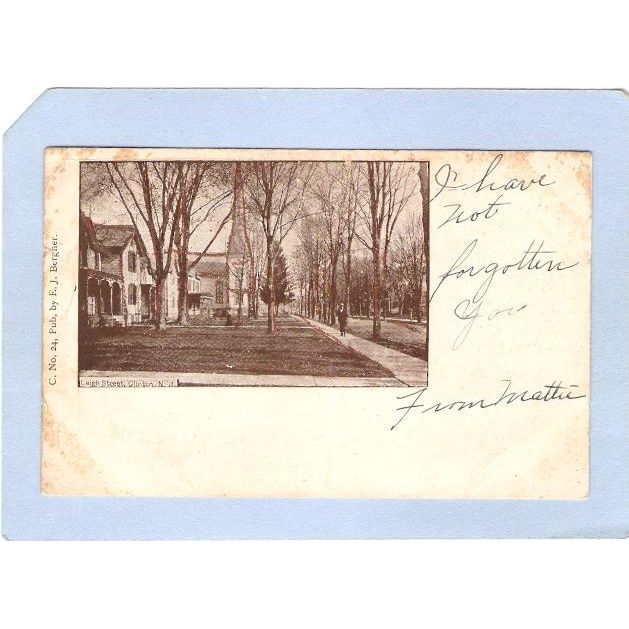 C. No. 24, Pub. by E. J. Bergner.
Leigh Street, Clinton, N. J.
I have
not
forgotten
You
From Mattie